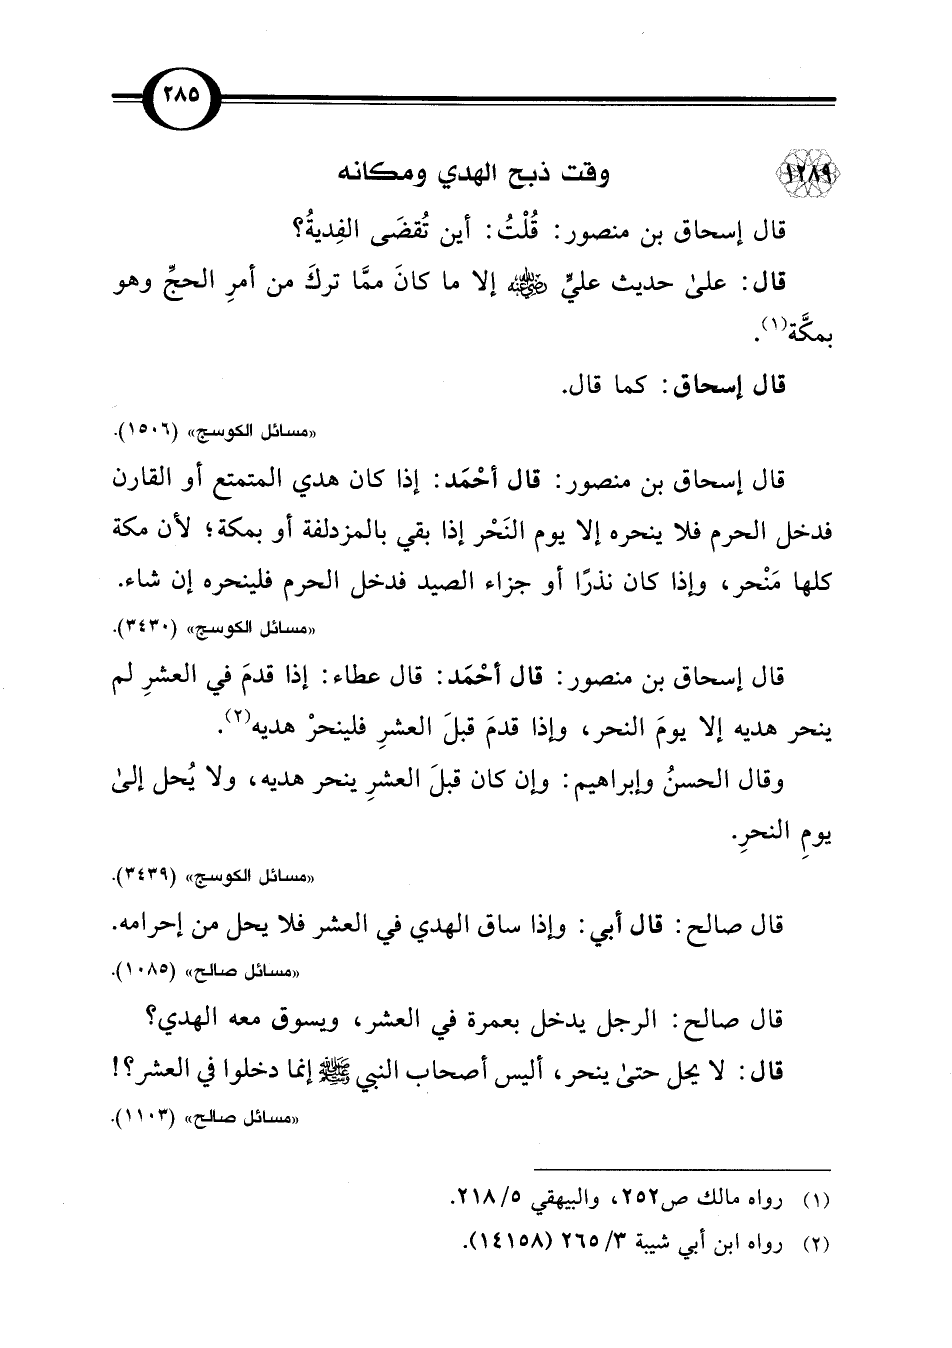 ٢٨٥
١٢٨٩ وقت ذبح الهدي ومكانه
قال إسحاق بن منصور: قُلْتُ: أين تُقضَى الفِديةُ؟
قال: علىٰ حديث عليٍّ رضي الله عنه إلا ما كانَ ممَّا تركَ من أمرِ الحجِّ وهو
بمكَّة(١).
قال إسحاق: كما قال.
«مسائل الكوسج» (١٥٠٦).
قال إسحاق بن منصور: قال أحْمَد: إذا كان هدي المتمتع أو القارن
فدخل الحرم فلا ينحره إلا يوم النَحْر إذا بقي بالمزدلفة أو بمكة؛ لأن مكة
كلها مَنْحر، وإذا كان نذرًا أو جزاء الصيد فدخل الحرم فلينحره إن شاء.
«مسائل الكوسج» (٣٤٣٠).
قال إسحاق بن منصور: قال أحْمَد: قال عطاء: إذا قدمَ في العشرِ لم
ينحر هديه إلا يومَ النحر، وإذا قدمَ قبلَ العشرِ فلينحرْ هديه(٢).
وقال الحسنُ وإبراهيم: وإن كان قبلَ العشرِ ينحر هديه، ولا يُحل إلىٰ
يومِ النحرِ.
«مسائل الكوسج» (٣٤٣٩).
قال صالح: قال أبي: وإذا ساق الهدي في العشر فلا يحل من إحرامه.
«مسائل صالح» (١٠٨٥).
قال صالح: الرجل يدخل بعمرة في العشر، ويسوق معه الهدي؟
قال: لا يحل حتىٰ ينحر، أليس أصحاب النبي ﷺ إنما دخلوا في العشر؟!
«مسائل صالح» (١١٠٣).
(١) رواه مالك ص٢٥٢، والبيهقي ٥/ ٢١٨.
(٢) رواه ابن أبي شيبة ٣/ ٢٦٥ (١٤١٥٨).